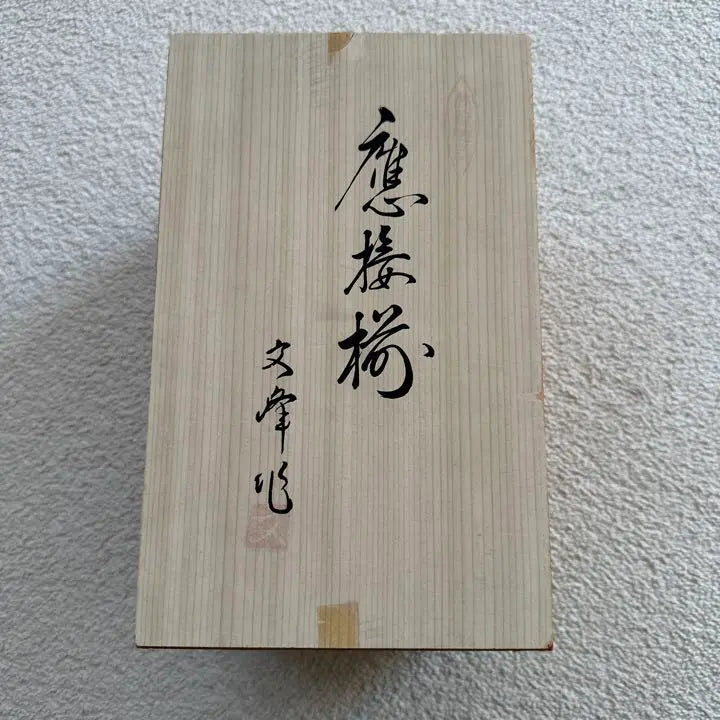 應接揃
文峰作